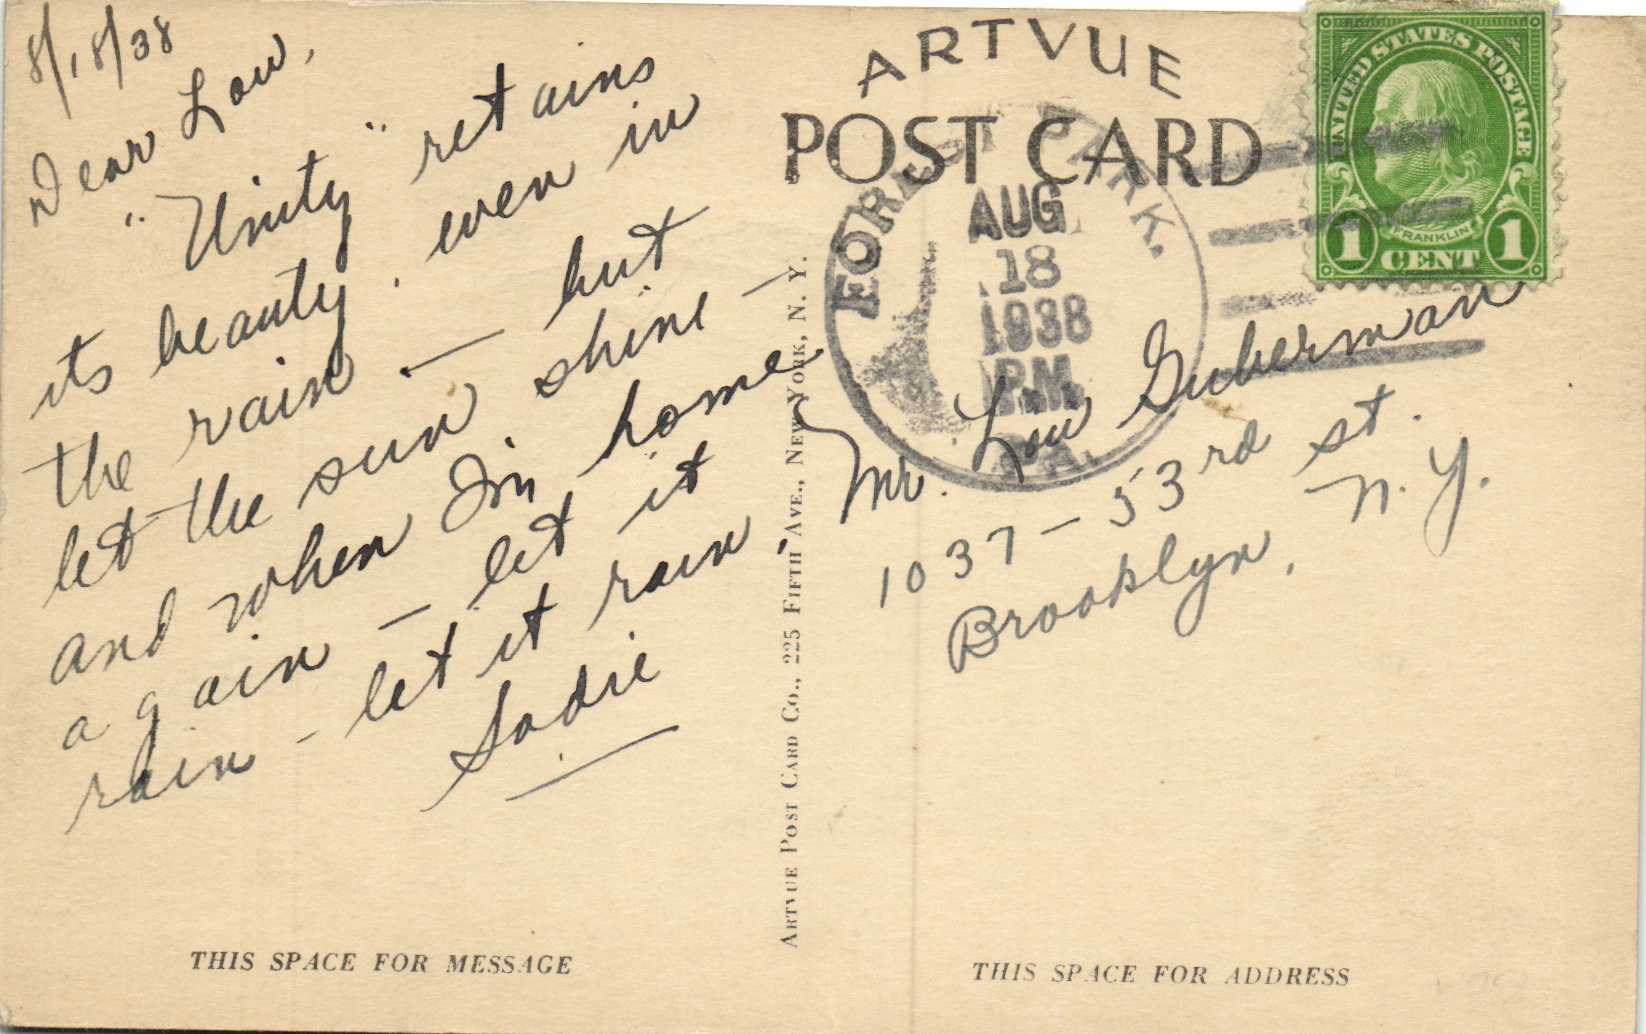 8/18/38
Dear Lou,
"Unity" retains
its beauty even in
the rain — but
let the sun shine —
and when I'm home
again — let it
rain - let it rain.
Sadie
THIS SPACE FOR MESSAGE
ARTVUE POST CARD CO., 225 FIFTH AVE., NEW YORK, N. Y.
ARTVUE
POST CARD
FOREST PARK.
AUG
18
1938
P.M.
PA.
UNITED STATES POSTAGE
FRANKLIN
1 CENT 1
Mr. Lou Guberman
1037 - 53rd st.
Brooklyn, N. Y.
THIS SPACE FOR ADDRESS